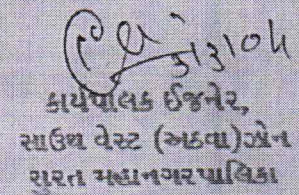 ૩/૩/૦૫
કાર્યપાલક ઈજનેર,
સાઉથ વેસ્ટ (અઠવા)ઝોન
સુરત મહાનગરપાલિકા